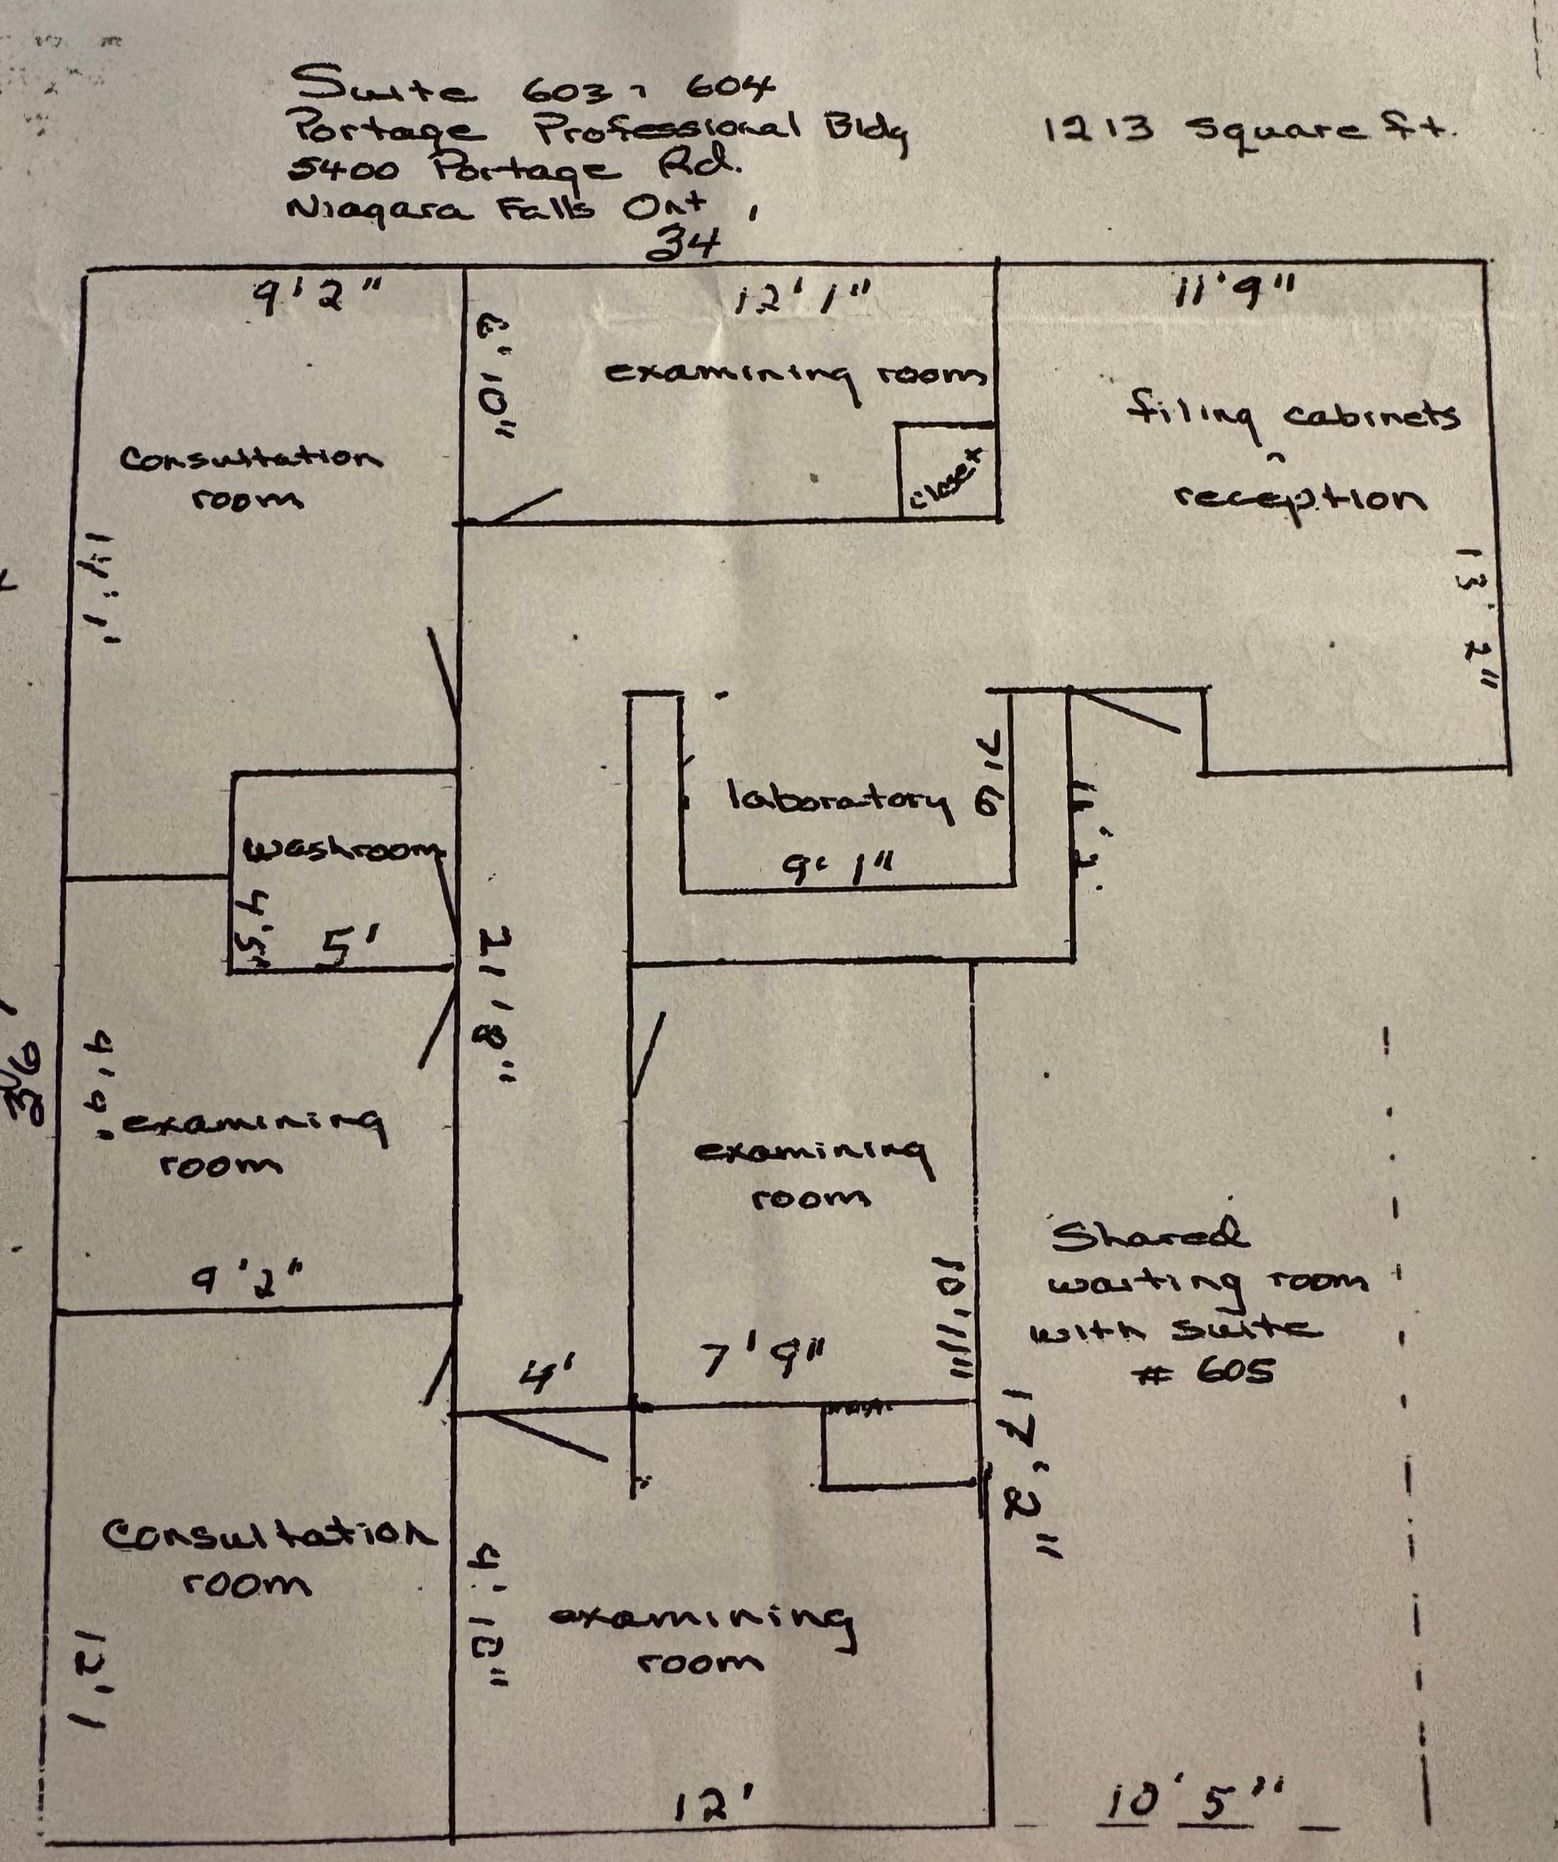 Suite 603, 604
Portage Professional Bldg
1213 square ft.
5400 Portage Rd.
Niagara Falls Ont
34'
9'2"
12'1"
11'9"
6'10"
examining room
closet
filing cabinets
reception
Consultation
room
13'2"
washroom
5'
laboratory
7'6
9'1"
11'2
21'8"
36'
examining
room
9'2"
examining
room
10'11"
4'
7'9"
Shared
waiting room
with suite
# 605
17'2"
Consultation
room
12'1
4'10"
examining
room
12'
10'5"